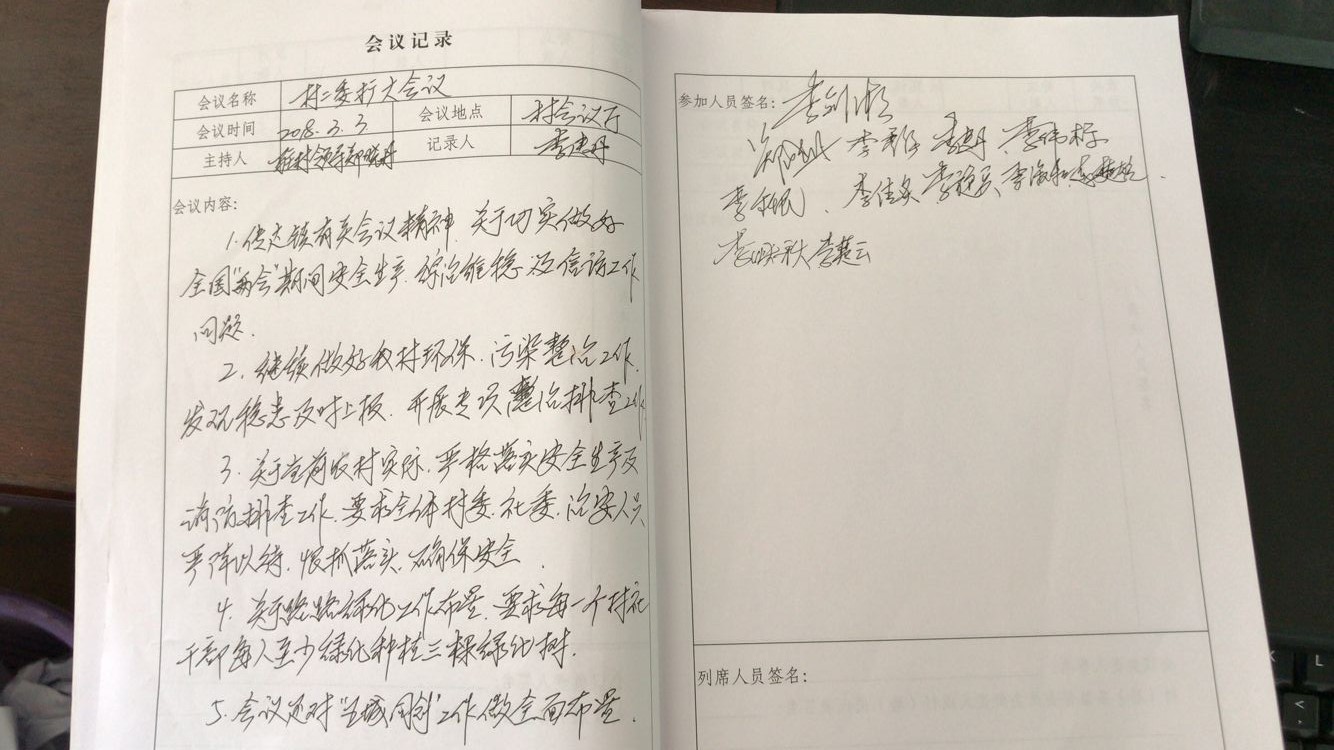 会议记录
会议名称 村二委扩大会议
会议时间 2018.3.3 会议地点 村会议厅
主持人 驻村领导郑晓丹 记录人 李建丹
会议内容:
1. 传达镇有关会议精神.关于切实做好
全国"两会"期间安全生产.综治维稳及信访工作
问题.
2. 继续做好农村环保.污染整治工作.
发现隐患及时上报.开展专项整治排查工作
3. 关于当前农村实际.严格落实安全生产及
消防排查工作.要求全体村委.社委.治安人员
严阵以待.狠抓落实.确保安全.
4. 关于 绿化工作布置.要求每一个村社
干部每人至少绿化种植三棵绿化树.
5. 会议还对"五城同创"工作做全面布置.
参加人员签名: 李剑
李 李建丹 李伟标
李 李佳 李 李海
李映秋 李慧云
列席人员签名: